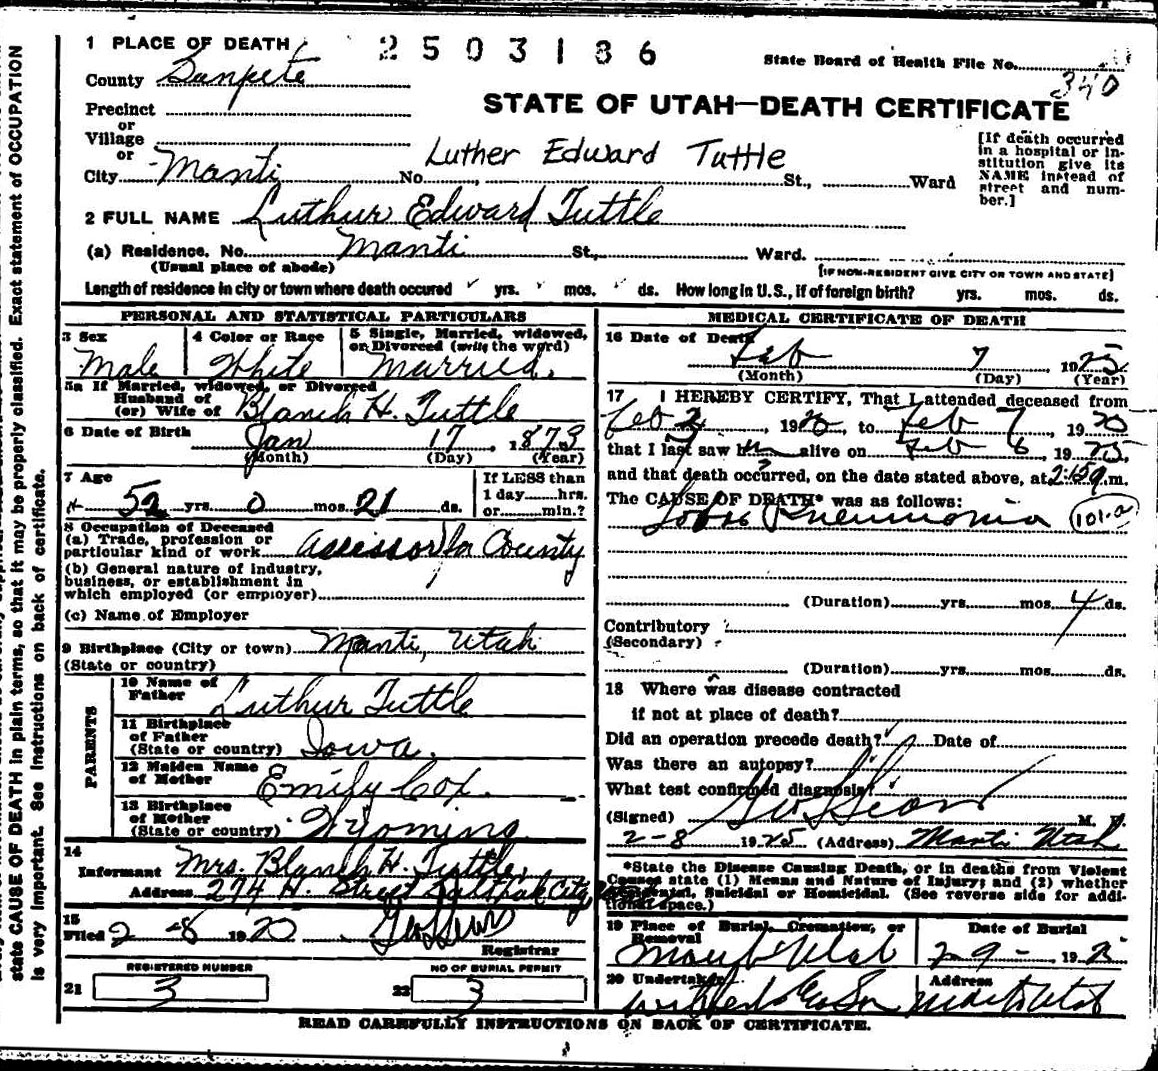 1 PLACE OF DEATH
2503186
State Board of Health File No.
340
County Sanpete
STATE OF UTAH—DEATH CERTIFICATE
Precinct
or
Village
or
City Manti No. St., Ward
Luther Edward Tuttle
[If death occurred
in a hospital or in-
stitution give its
NAME instead of
street and num-
ber.]
2 FULL NAME Luthur Edward Tuttle
(a) Residence. No. Manti St., Ward.
(Usual place of abode)
[IF NON-RESIDENT GIVE CITY OR TOWN AND STATE]
Length of residence in city or town where death occured yrs. mos. ds. How long in U.S., if of foreign birth? yrs. mos. ds.
PERSONAL AND STATISTICAL PARTICULARS
3 Sex
Male
4 Color or Race
White
5 Single, Married, widowed,
or Divorced (write the word)
Married.
5a If Married, widowed, or Divorced
Husband of
(or) Wife of Blanch H. Tuttle
6 Date of Birth Jan 17 1873
(Month) (Day) (Year)
7 Age
52 yrs. 0 mos. 21 ds.
If LESS than
1 day hrs.
or min.?
8 Occupation of Deceased
(a) Trade, profession or
particular kind of work Assessor for County
(b) General nature of industry,
business, or establishment in
which employed (or employer)
(c) Name of Employer
9 Birthplace (City or town) Manti, Utah
(State or country)
PARENTS
10 Name of
Father Luthur Tuttle
11 Birthplace
of Father
(State or country) Iowa.
12 Maiden Name
of Mother Emily Cox.
13 Birthplace
of Mother
(State or country) Wyoming
14
Informant Mrs. Blanch H. Tuttle,
Address 274 H. Street Salt Lake City
15
Filed 2-8 1920 Geo Sears
Registrar
REGISTERED NUMBER
21 3
NO OF BURIAL PERMIT
22 3
MEDICAL CERTIFICATE OF DEATH
16 Date of Death
Feb 7 1925
(Month) (Day) (Year)
17 I HEREBY CERTIFY, That I attended deceased from
Feb 2, 19 , to Feb 7, 19
that I last saw him alive on Feb 6 1925,
and that death occurred, on the date stated above, at m.
The CAUSE OF DEATH* was as follows:
Lobar Pneumonia 101-a
(Duration) yrs. mos. 4 ds.
Contributory
(Secondary)
(Duration) yrs. mos. ds.
18 Where was disease contracted
if not at place of death?
Did an operation precede death? Date of
Was there an autopsy?
What test confirmed diagnosis?
(Signed) M. D.
2-8 1925 (Address) Manti Utah
*State the Disease Causing Death, or in deaths from Violent
Causes state (1) Means and Nature of Injury; and (2) whether
Accidental, Suicidal or Homicidal. (See reverse side for addi-
tional space.)
19 Place of Burial, Cremation, or
Removal
Manti Utah
Date of Burial
2-9- 192
20 Undertaker
Address
Manti Utah
READ CAREFULLY INSTRUCTIONS ON BACK OF CERTIFICATE.
state CAUSE OF DEATH in plain terms, so that it may be properly classified. Exact statement of OCCUPATION
is very important. See instructions on back of certificate.